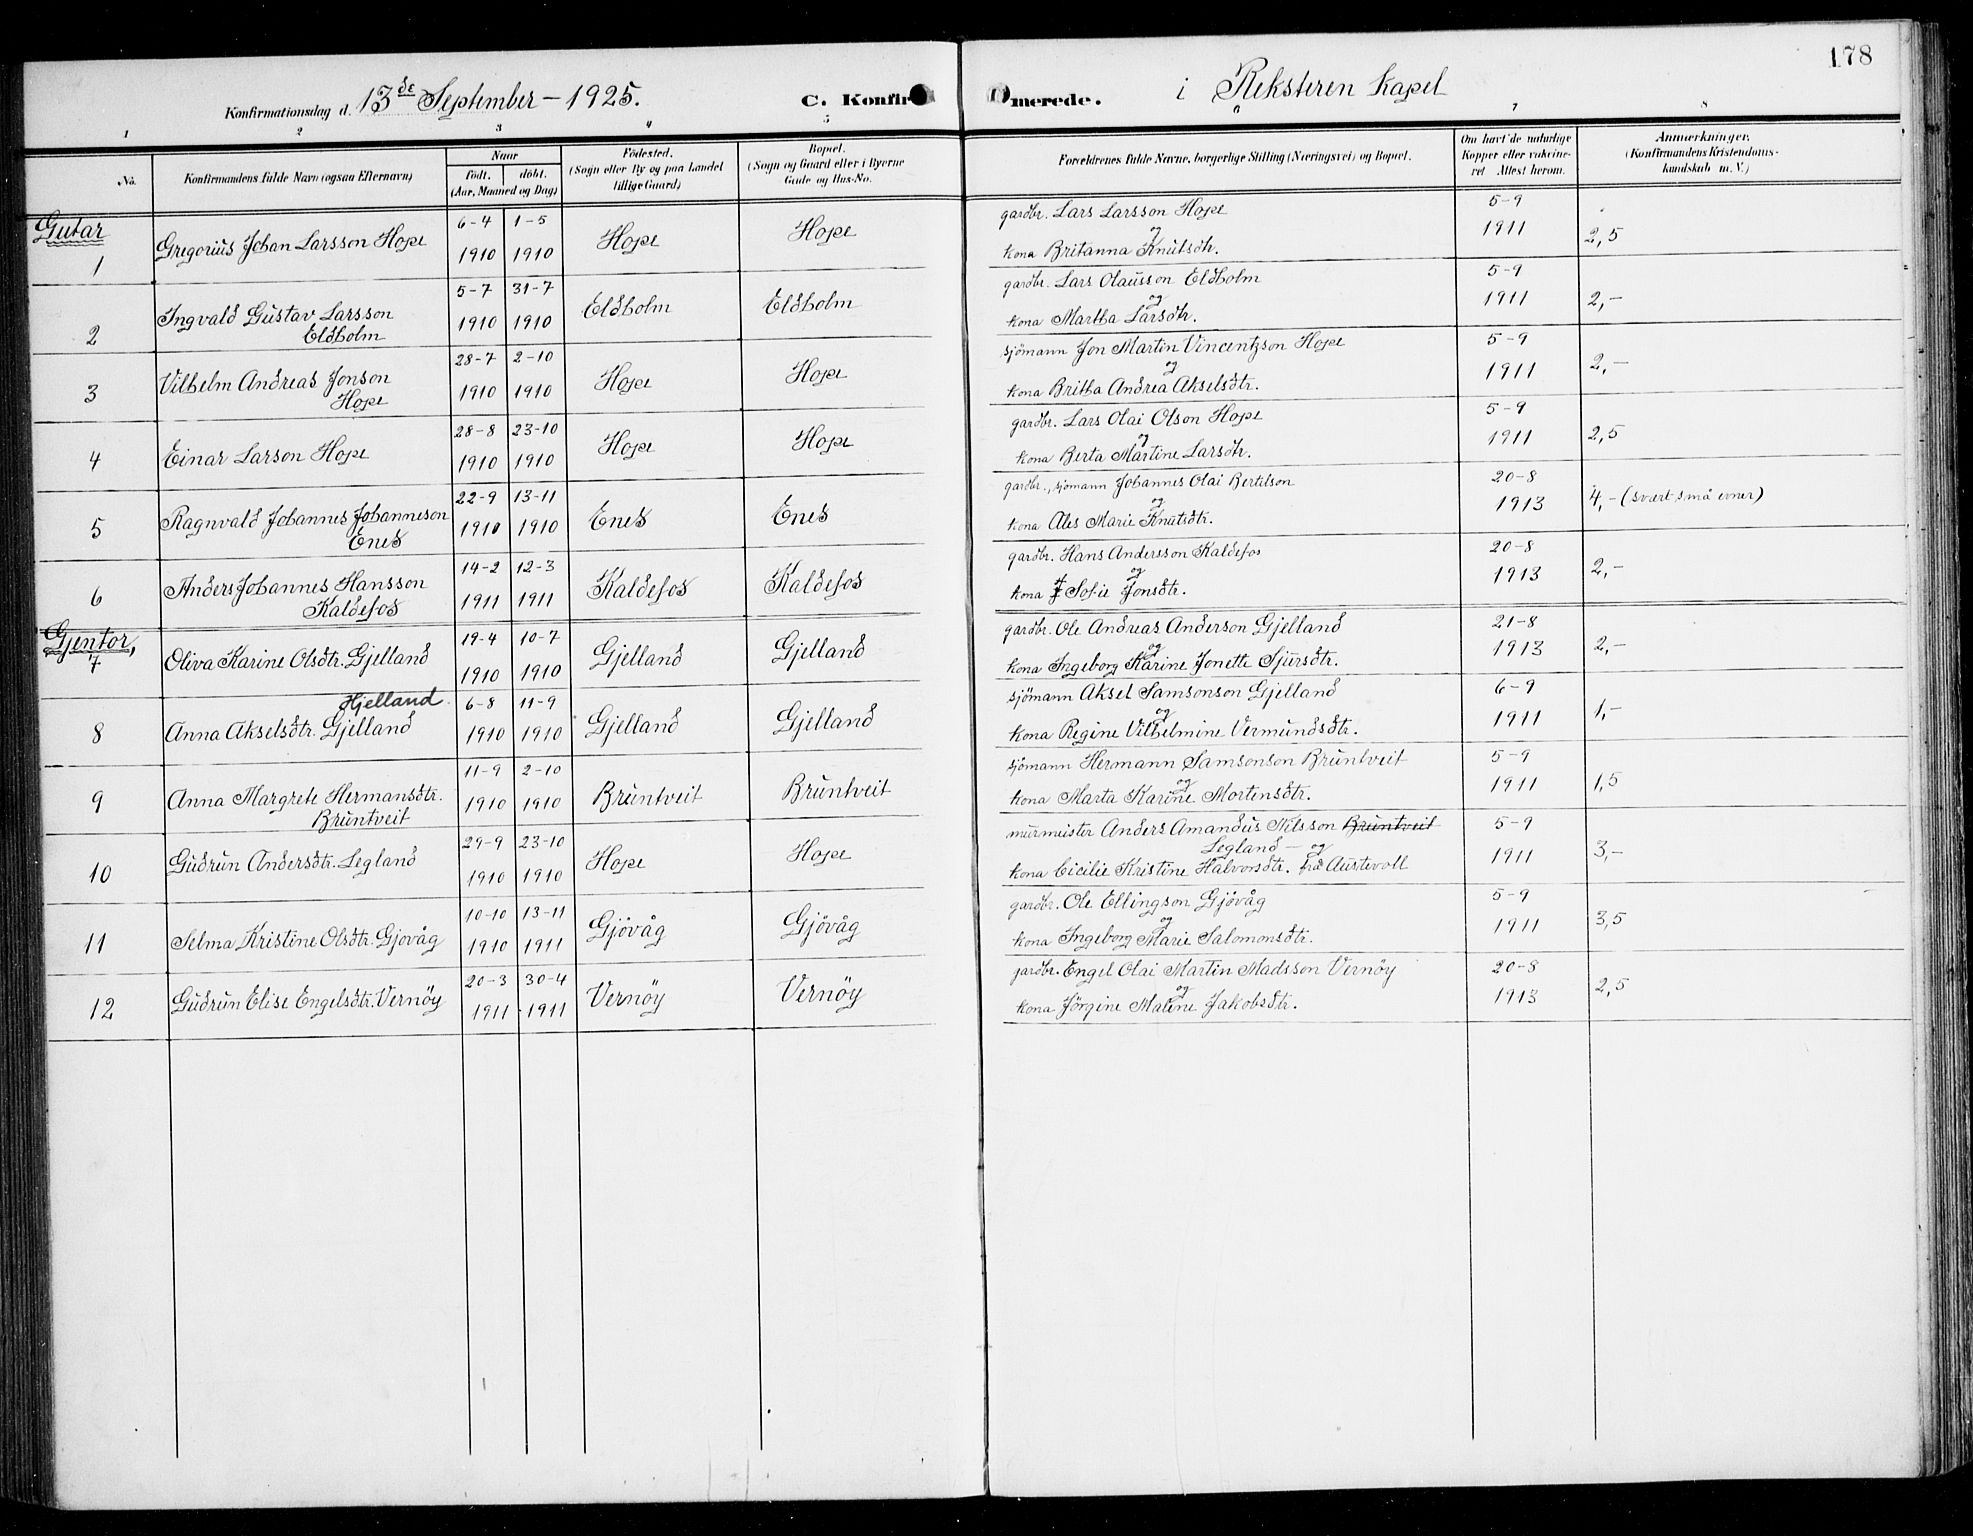 178
Konfirmationsdag d. 13de September – 1925. C. Konfirmerede. i Reksteren Kapel
1 2 3 4 5 6 7 8
No. Konfirmandens fulde Navn (ogsaa Efternavn) Naar født. døbt. (Aar, Maaned og Dag) Fødested. (Sogn eller By og paa Landet tillige Gaard) Bopæl. (Sogn og Gaard eller i Byerne Gade og Hus-No. Forældrenes fulde Navne, borgerlige Stilling (Næringsvei) og Bopæl. Om havt de naturlige Kopper eller vakcineret. Attest herom. Anmærkninger. (Konfirmandens Kristendomskundskab m. V.)
Gutar
1 Gregorius Johan Larsson Hope 6-4 1910 1-5 1910 Hope Hope gardbr. Lars Larsson Hope og kona Britanna Knutsdtr. 5-9 1911 2,5
2 Ingvald Gustav Larsson Eldholm 5-7 1910 31-7 1910 Eldholm Eldholm gardbr. Lars Olausson Eldholm og kona Martha Larsdtr. 5-9 1911 2,-
3 Vilhelm Andreas Jonson Hope 28-7 1910 2-10 1910 Hope Hope sjömann Jon Martin Vincentzson Hope og kona Britha Andrea Akselsdtr. 5-9 1911 2,-
4 Einar Larson Hope 28-8 1910 23-10 1910 Hope Hope gardbr. Lars Olai Olson Hope og kona Berta Martine Larsdtr. 5-9 1911 2,5
5 Ragnvald Johannes Johanneson Enes 22-9 1910 13-11 1910 Enes Enes gardbr., sjomann Johannes Olai Bertilson og kona Ales Marie Knutsdtr. 20-8 1913 4,- (svært små evner)
6 Anders Johannes Hansson Kaldefos 14-2 1911 12-3 1911 Kaldefos Kaldefos gardbr. Hans Andersson Kaldefos og kona Sofie Jonsdtr. 20-8 1913 2,-
Gjentor,
7 Oliva Karine Olsdtr. Gjelland 19-4 1910 10-7 1910 Gjelland Gjelland gardbr. Ole Andreas Anderson Gjelland og kona Ingeborg Karine Jonette Sjursdtr. 21-8 1913 2,-
Hjelland
8 Anna Akselsdtr. Gjelland 6-8 1910 11-9 1910 Gjelland Gjelland sjömann Aksel Samsonson Gjelland og kona Regine Vilhelmine Vermundsdtr. 6-9 1911 1,-
9 Anna Margrete Hermansdtr. Bruntveit 11-9 1910 2-10 1910 Bruntveit Bruntveit sjömann Hermann Samsonson Bruntveit og kona Marta Karine Mortensdtr. 5-9 1911 1,5
10 Gudrun Andersdtr. Legland 29-9 1910 23-10 1910 Hope Hope murmeister Anders Amandus Nilsson Bruntveit Legland – og kona Cicilie Kristine Halvorsdtr. frå Austevoll 5-9 1911 3,-
11 Selma Kristine Olsdtr. Gjovåg 10-10 1910 13-11 1911 Gjövåg Gjövåg gardbr. Ole Ellingson Gjövåg og kona Ingeborg Marie Salomonsdtr. 5-9 1911 3,5
12 Gudrun Elise Engelsdtr. Vernöy 20-3 1911 30-4 1911 Vernöy Vernöy gardbr. Engel Olai Martin Madsson Vernöy og kona Jörgine Maline Jakobsdtr. 20-8 1913 2,5